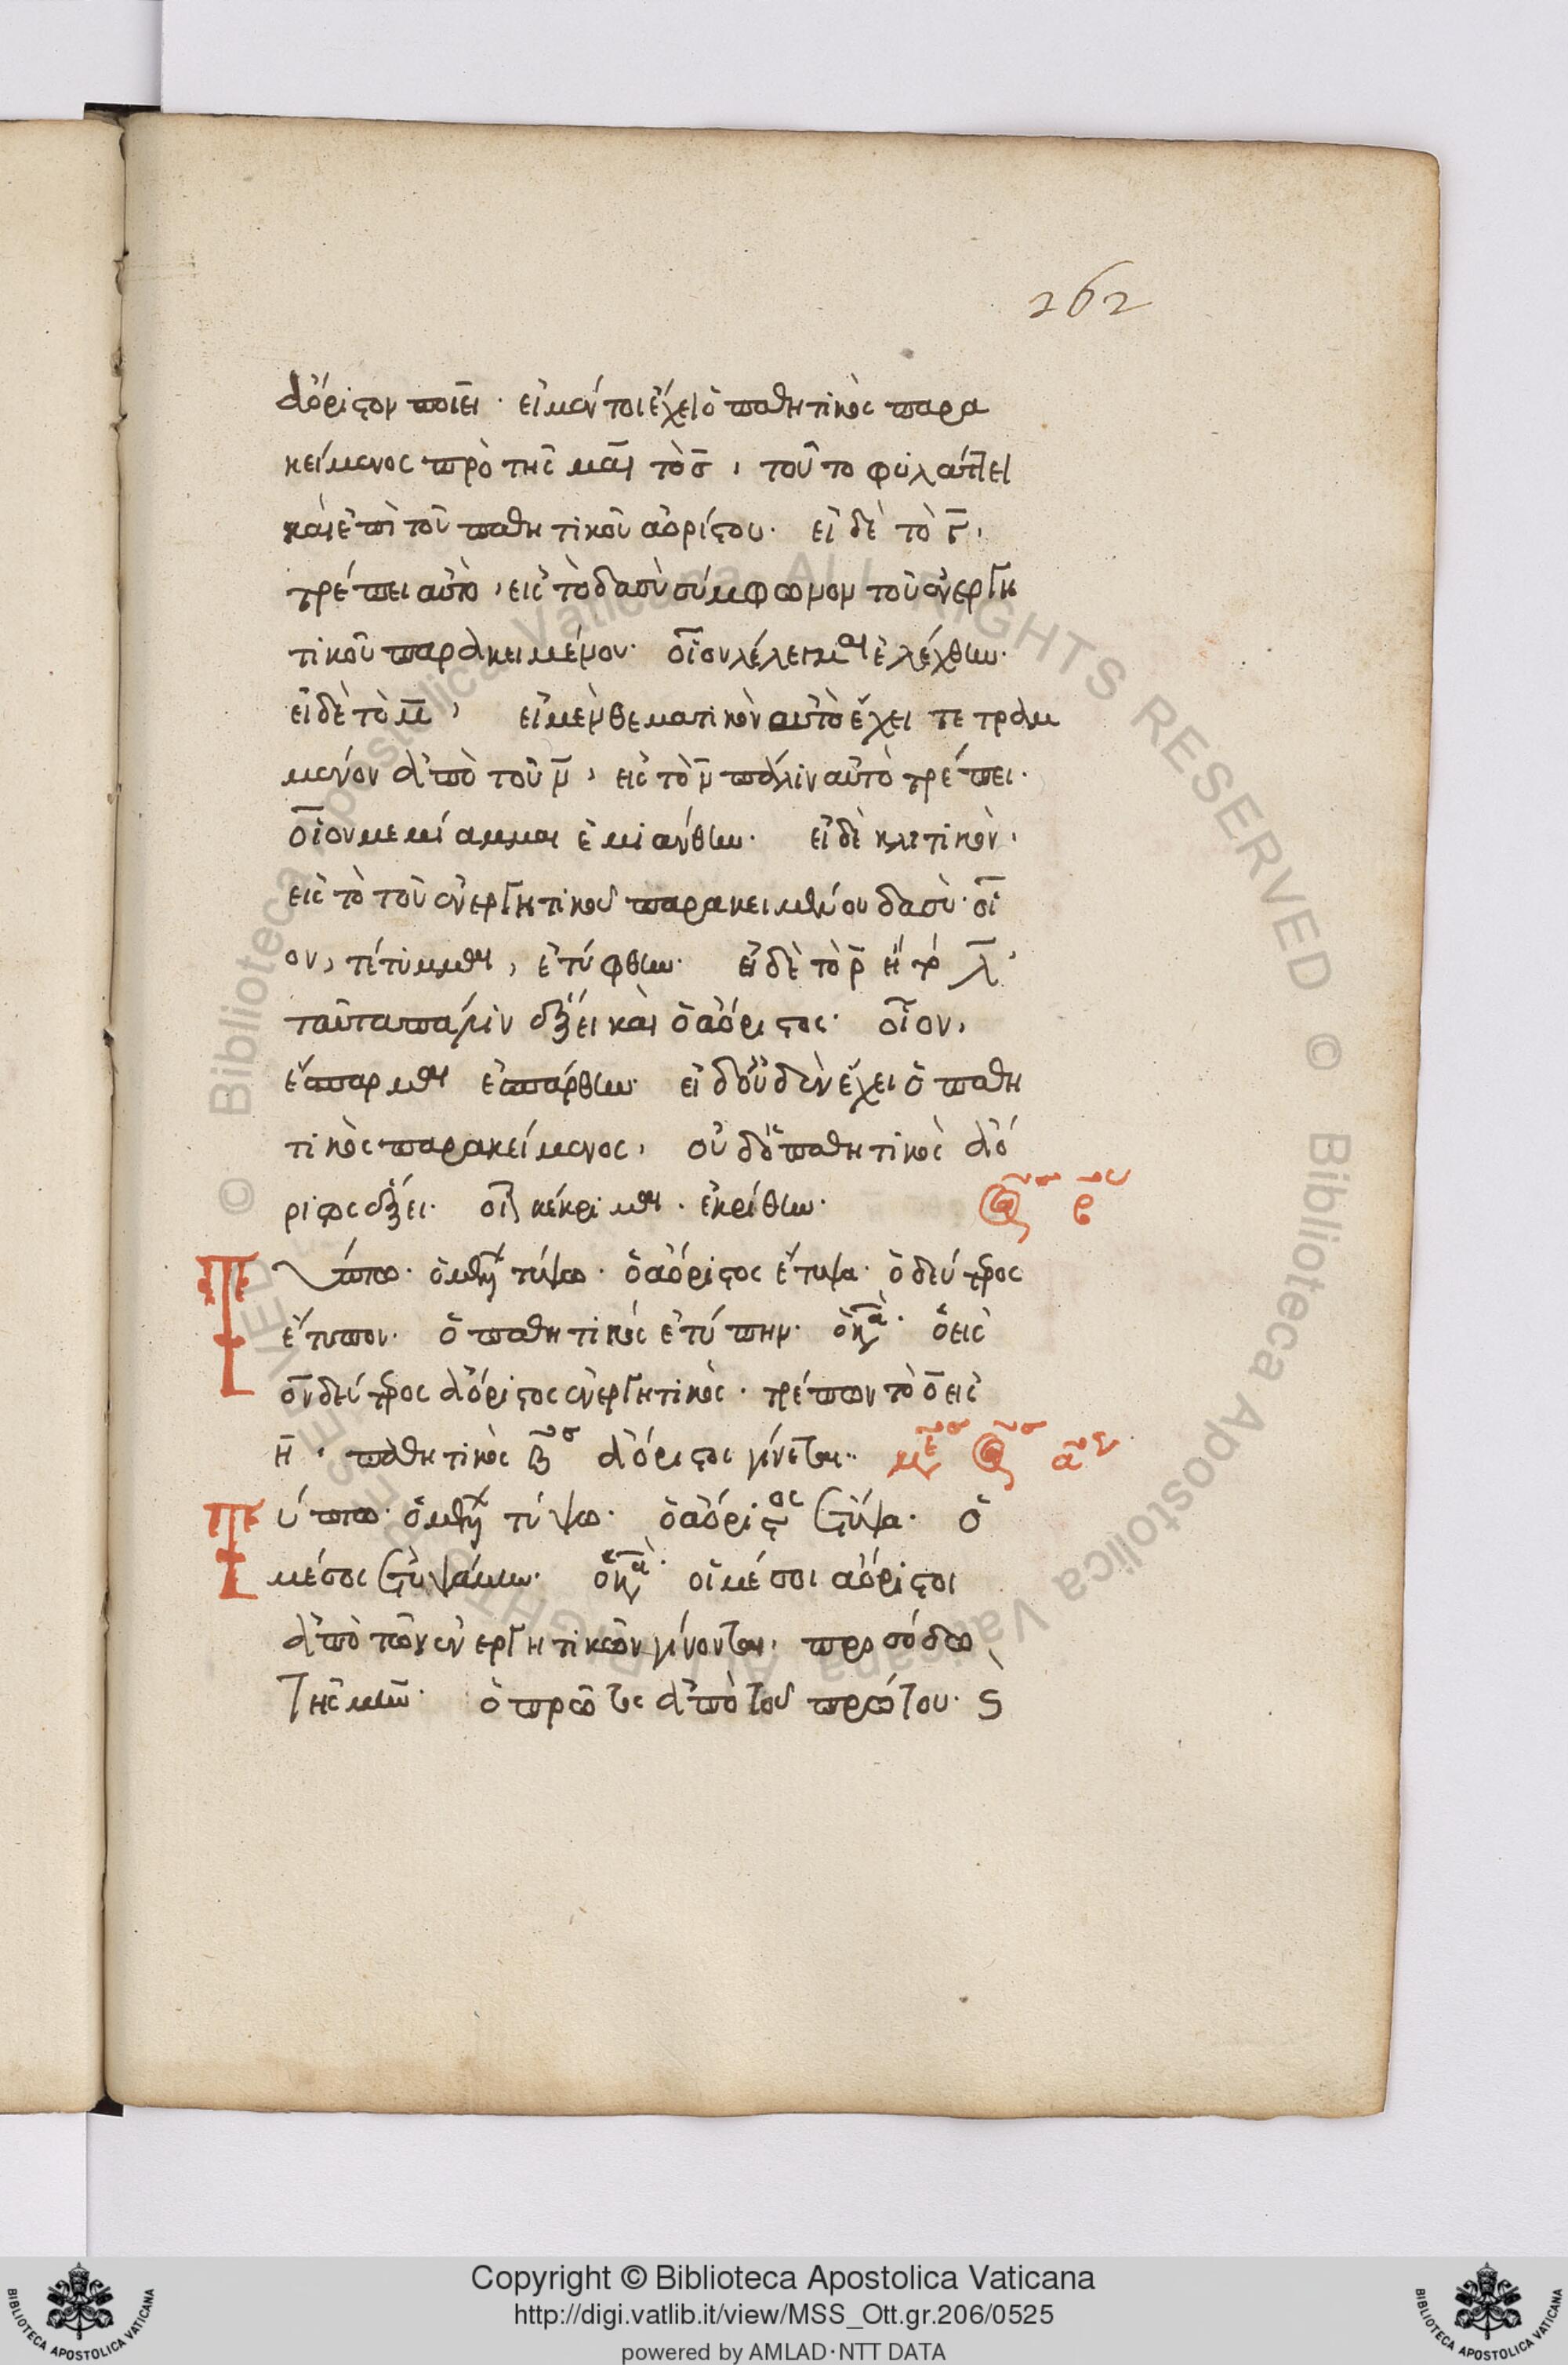 262
ἀόριστον ποιεῖ· εἰ μέντοι ἔχει ὁ παθητικὸς παρα
κείμενος πρὸ τῆς μαι τὸ σ, τοῦτο φυλάττει
καὶ ἐπὶ τοῦ παθητικοῦ ἀορίστου· εἰ δὲ τὸ γ,
τρέπει αὐτὸ, εἰς τὸ δασὺ σύμφωνον τοῦ ἐνεργη
τικοῦ παρακειμένου· οἷον λέλεγμαι ἐλέχθην·
εἰ δὲ τὸ μ, εἰ μὲν θεματικὸν αὐτὸ ἔχει τετραμ
μένον ἀπὸ τοῦ ν, εἰς τὸ ν πάλιν αὐτὸ τρέπει·
οἷον μεμίαμμαι ἐμιάνθην· εἰ δὲ κλιτικὸν,
εἰς τὸ τοῦ ἐνεργητικοῦ παρακειμένου δασύ· οἷ
ον, τέτυμμαι, ἐτύφθην· εἰ δὲ τὸ ρ ἢ τὸ λ,
ταῦτα πάλιν ἕξει καὶ ὁ ἀόριστος· οἷον,
ἔσπαρμαι ἐσπάρθην· εἰ δ' οὐδὲν ἔχει ὁ παθη
τικὸς παρακείμενος, οὐδ' ὁ παθητικὸς ἀό
ριστος ἕξει· οἷον κέκριμαι· ἐκρίθην·
Τύπτω· ὁ μέλλων τύψω· ὁ ἀόριστος ἔτυψα· ὁ δεύτερος
ἔτυπον· ὁ παθητικὸς ἐτύπην· ὁ κανών· ὁ εἰς
ον δεύτερος ἀόριστος ἐνεργητικὸς· τρέπων τὸ ο εἰς
η· παθητικὸς β ἀόριστος γίνεται·
Τύπτω· ὁ μέλλων τύψω· ὁ ἀόριστος ἔτυψα· ὁ
μέσος ἐτυψάμην· ὁ κανών· οἱ μέσοι ἀόριστοι
ἀπὸ τῶν ἐνεργητικῶν γίνονται, προσόδῳ
τῆς μην· ὁ πρῶτος ἀπὸ τοῦ πρώτου·
Copyright © Biblioteca Apostolica Vaticana
http://digi.vatlib.it/view/MSS_Ott.gr.206/0525
powered by AMLAD·NTT DATA